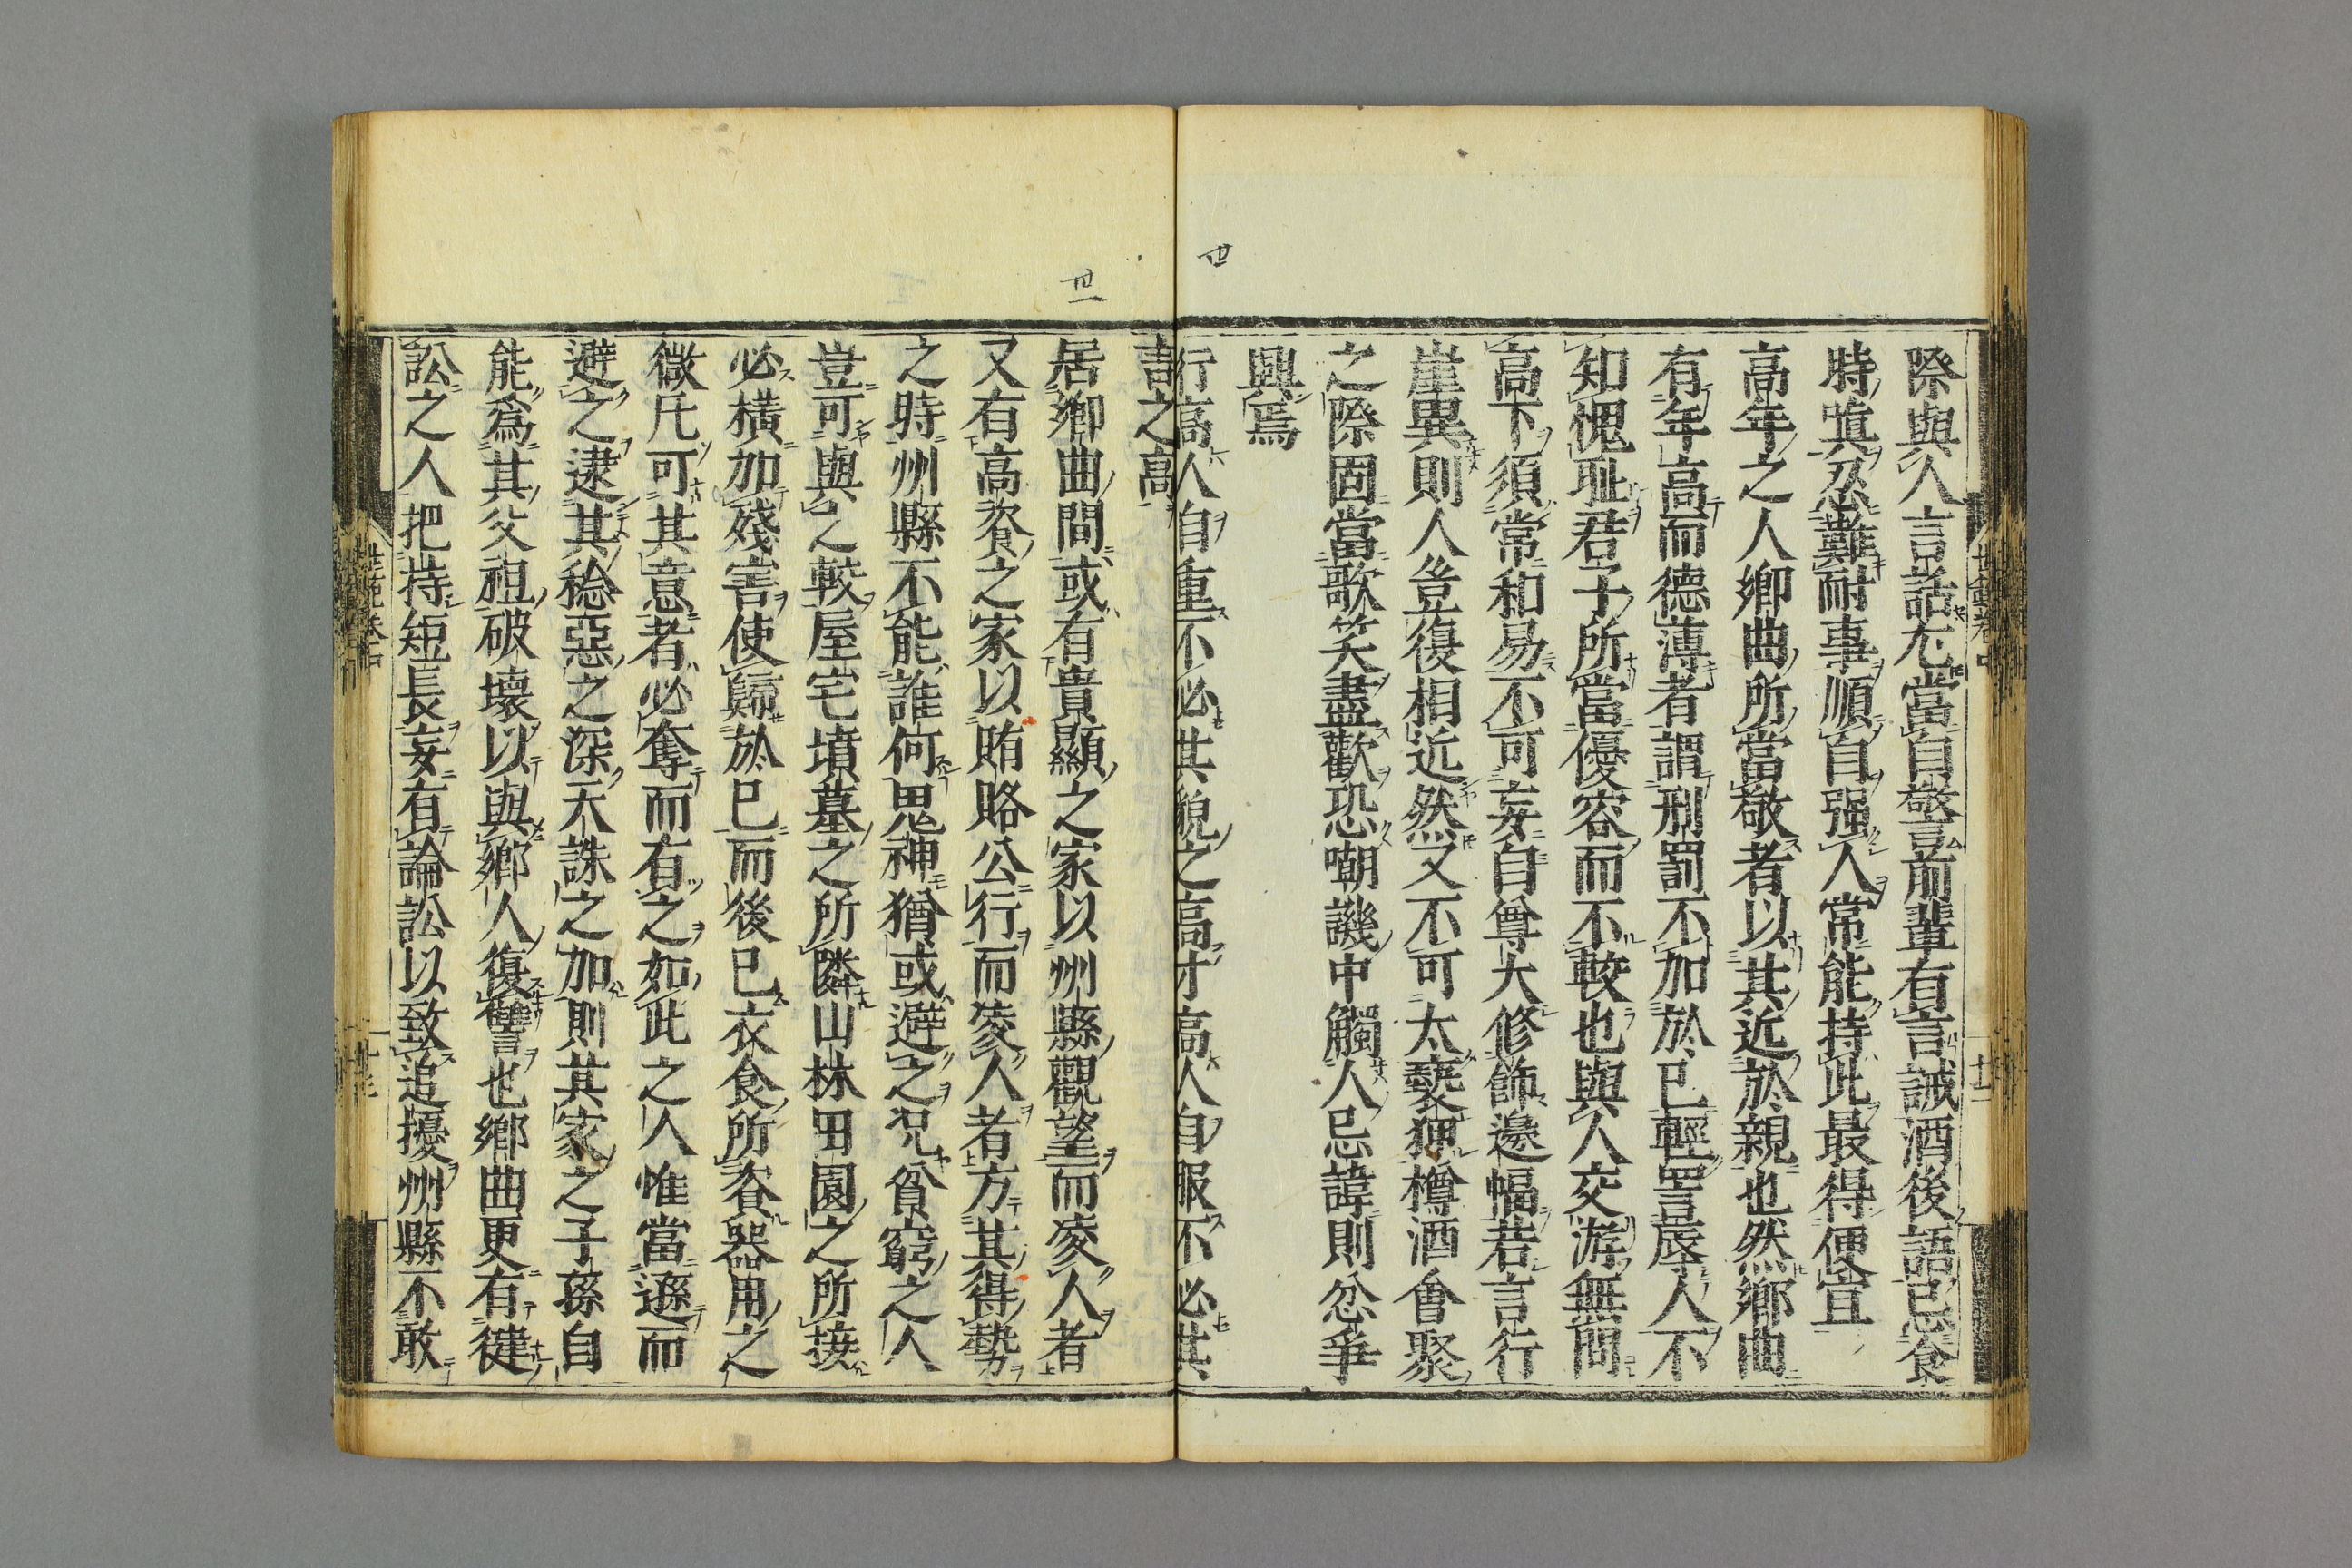 際與人言話尤當自警前輩有言誡酒後語忌食
時嗔忍難耐事順自强人常能持此最得便宜
高年之人鄉曲所當敬者以其近於親也然鄉曲
有年高而德薄者謂刑罰不加於已輕詈辱人不
知愧耻君子所當優容而不較也與人交游無問
高下須常和易不可妄自尊大修飾邊幅若言行
崖異則人豈復相近然又不可太褻狎樽酒會聚
之際固當歌笑盡歡恐嘲譏中觸人忌諱則忿爭
興焉
行高人自重不必其貌之高才高人自服不必其
言之高
居鄉曲間或有貴顯之家以州縣觀望而凌人者
又有高資之家以賄賂公行而凌人者方其得勢
之時州縣不能誰何鬼神猶或避之况貧窮之人
豈可與之較屋宅墳墓之所隣山林田園之所接
必橫加殘害使歸於已而後已衣食所資器用之
微凡可其意者必奪而有之如此之人惟當遜而
避之逮其稔惡之深天誅之加則其家之子孫自
能爲其父祖破壞以與鄉人復讐也鄉曲更有健
訟之人把持短長妄有論訟以致追擾州縣不敢